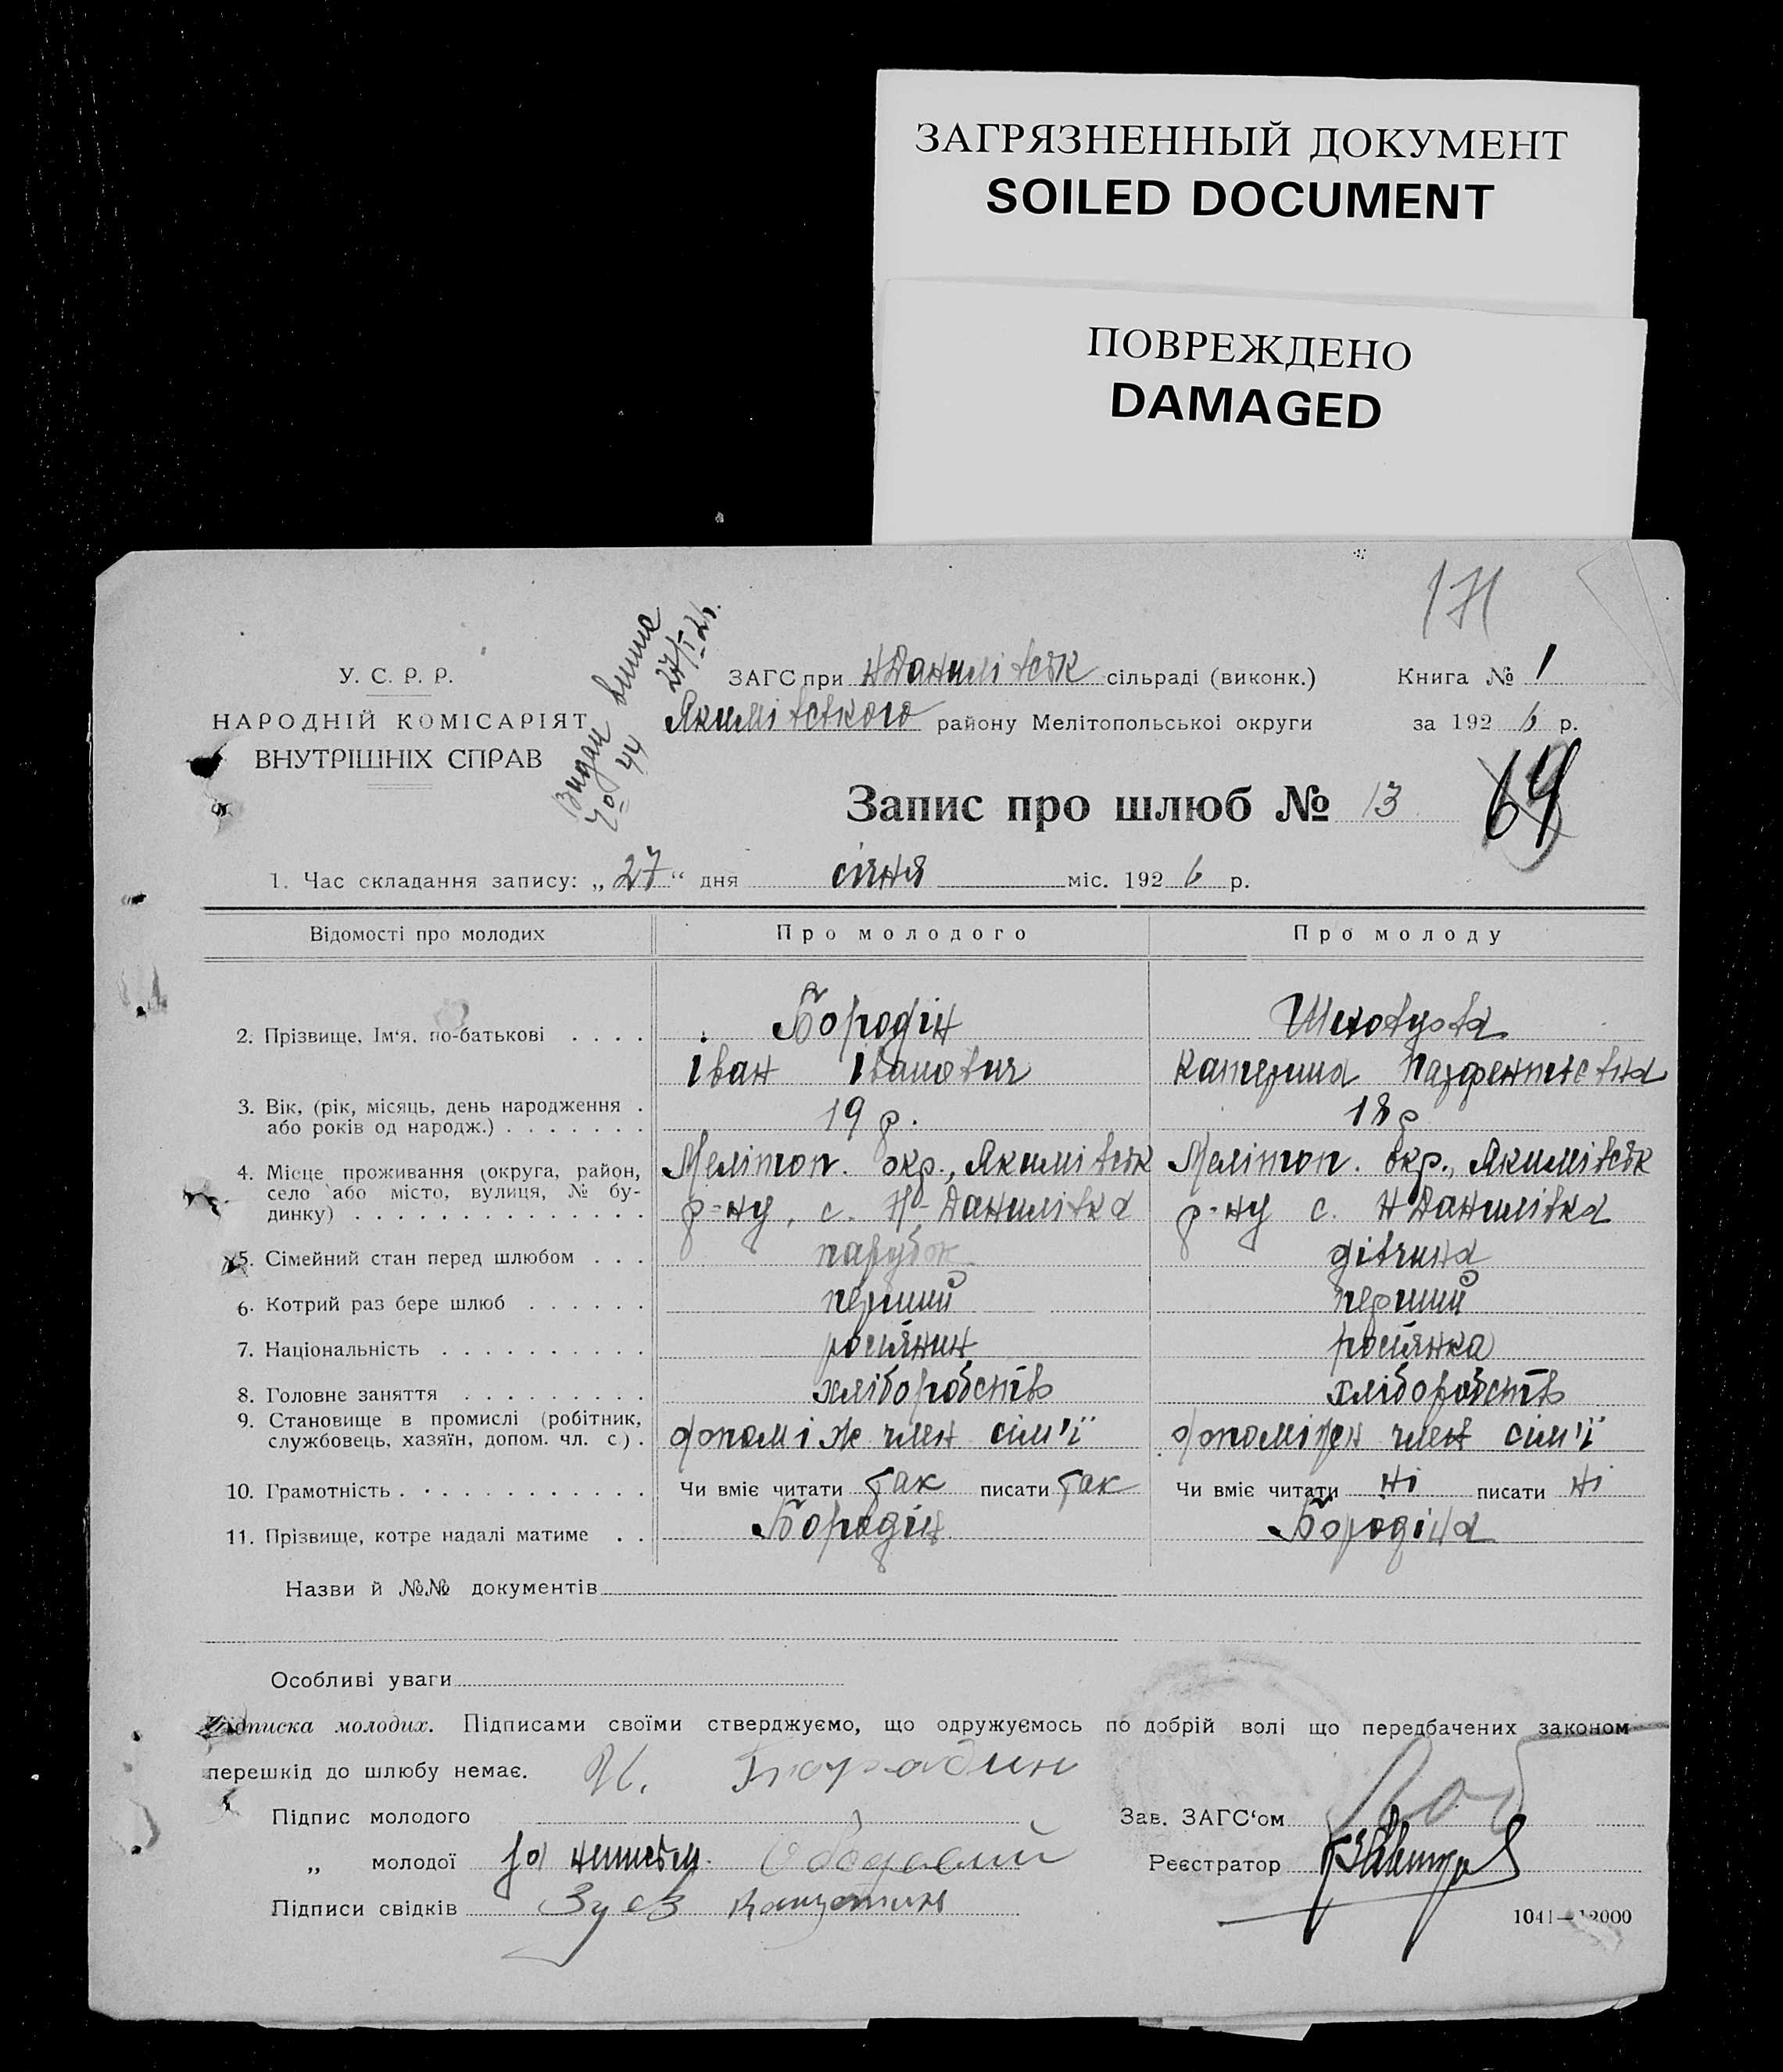 ЗАГРЯЗНЕННЫЙ ДОКУМЕНТ
SOILED DOCUMENT
ПОВРЕЖДЕНО
DAMAGED
171
У. С. Р. Р.
НАРОДНІЙ КОМІСАРІЯТ
ВНУТРІШНІХ СПРАВ
Видан виписа
№ 44 27/I-26.
ЗАГС при НДанилівськ сільраді (виконк.)
Якимівського району Мелітопольської округи
Книга № 1
за 1926 р.
Запис про шлюб № 13
69
1. Час складання запису: „27“ дня січня міс. 1926 р.
Відомості про молодих Про молодого Про молоду
2. Прізвище, Ім‘я, по-батькові . . . . Бородін
Іван Іванович Катерина
3. Вік, (рік, місяць, день народження . або років од народж.) . . . . . . . 19 р. 18 р
4. Місце проживання (округа, район, Меліптоп. окр., Якимівськ Меліптоп. окр., Якимівськ
село або місто, вулиця, № бу-
динку) . . . . . . . . . . . . . . р-ну, с. Н-Данилівка р-ну с. НДанилівка
5. Сімейний стан перед шлюбом . . . парубок дівчина
6. Котрий раз бере шлюб . . . . . . перший перший
7. Національність . . . . . . . . . . росіянин росіянка
8. Головне заняття . . . . . . . . . хліборобств хліборобств
9. Становище в промислі (робітник,
службовець, хазяїн, допом. чл. с) . член сім'ї член сім'ї
10. Грамотність . . . . . . . . . . . . Чи вміє читати так писати так Чи вміє читати ні писати ні
11. Прізвище, котре надалі матиме . . Бородін Бородіна
Назви й №№ документів
Особливі уваги
Підписка молодих. Підписами своїми стверджуємо, що одружуємось по добрій волі що передбачених законом
перешкід до шлюбу немає. И. Бородин
Підпис молодого
Зав. ЗАГС‘ом
„ молодої за
Реєстратор
Підписи свідків Зуев
1041—12000